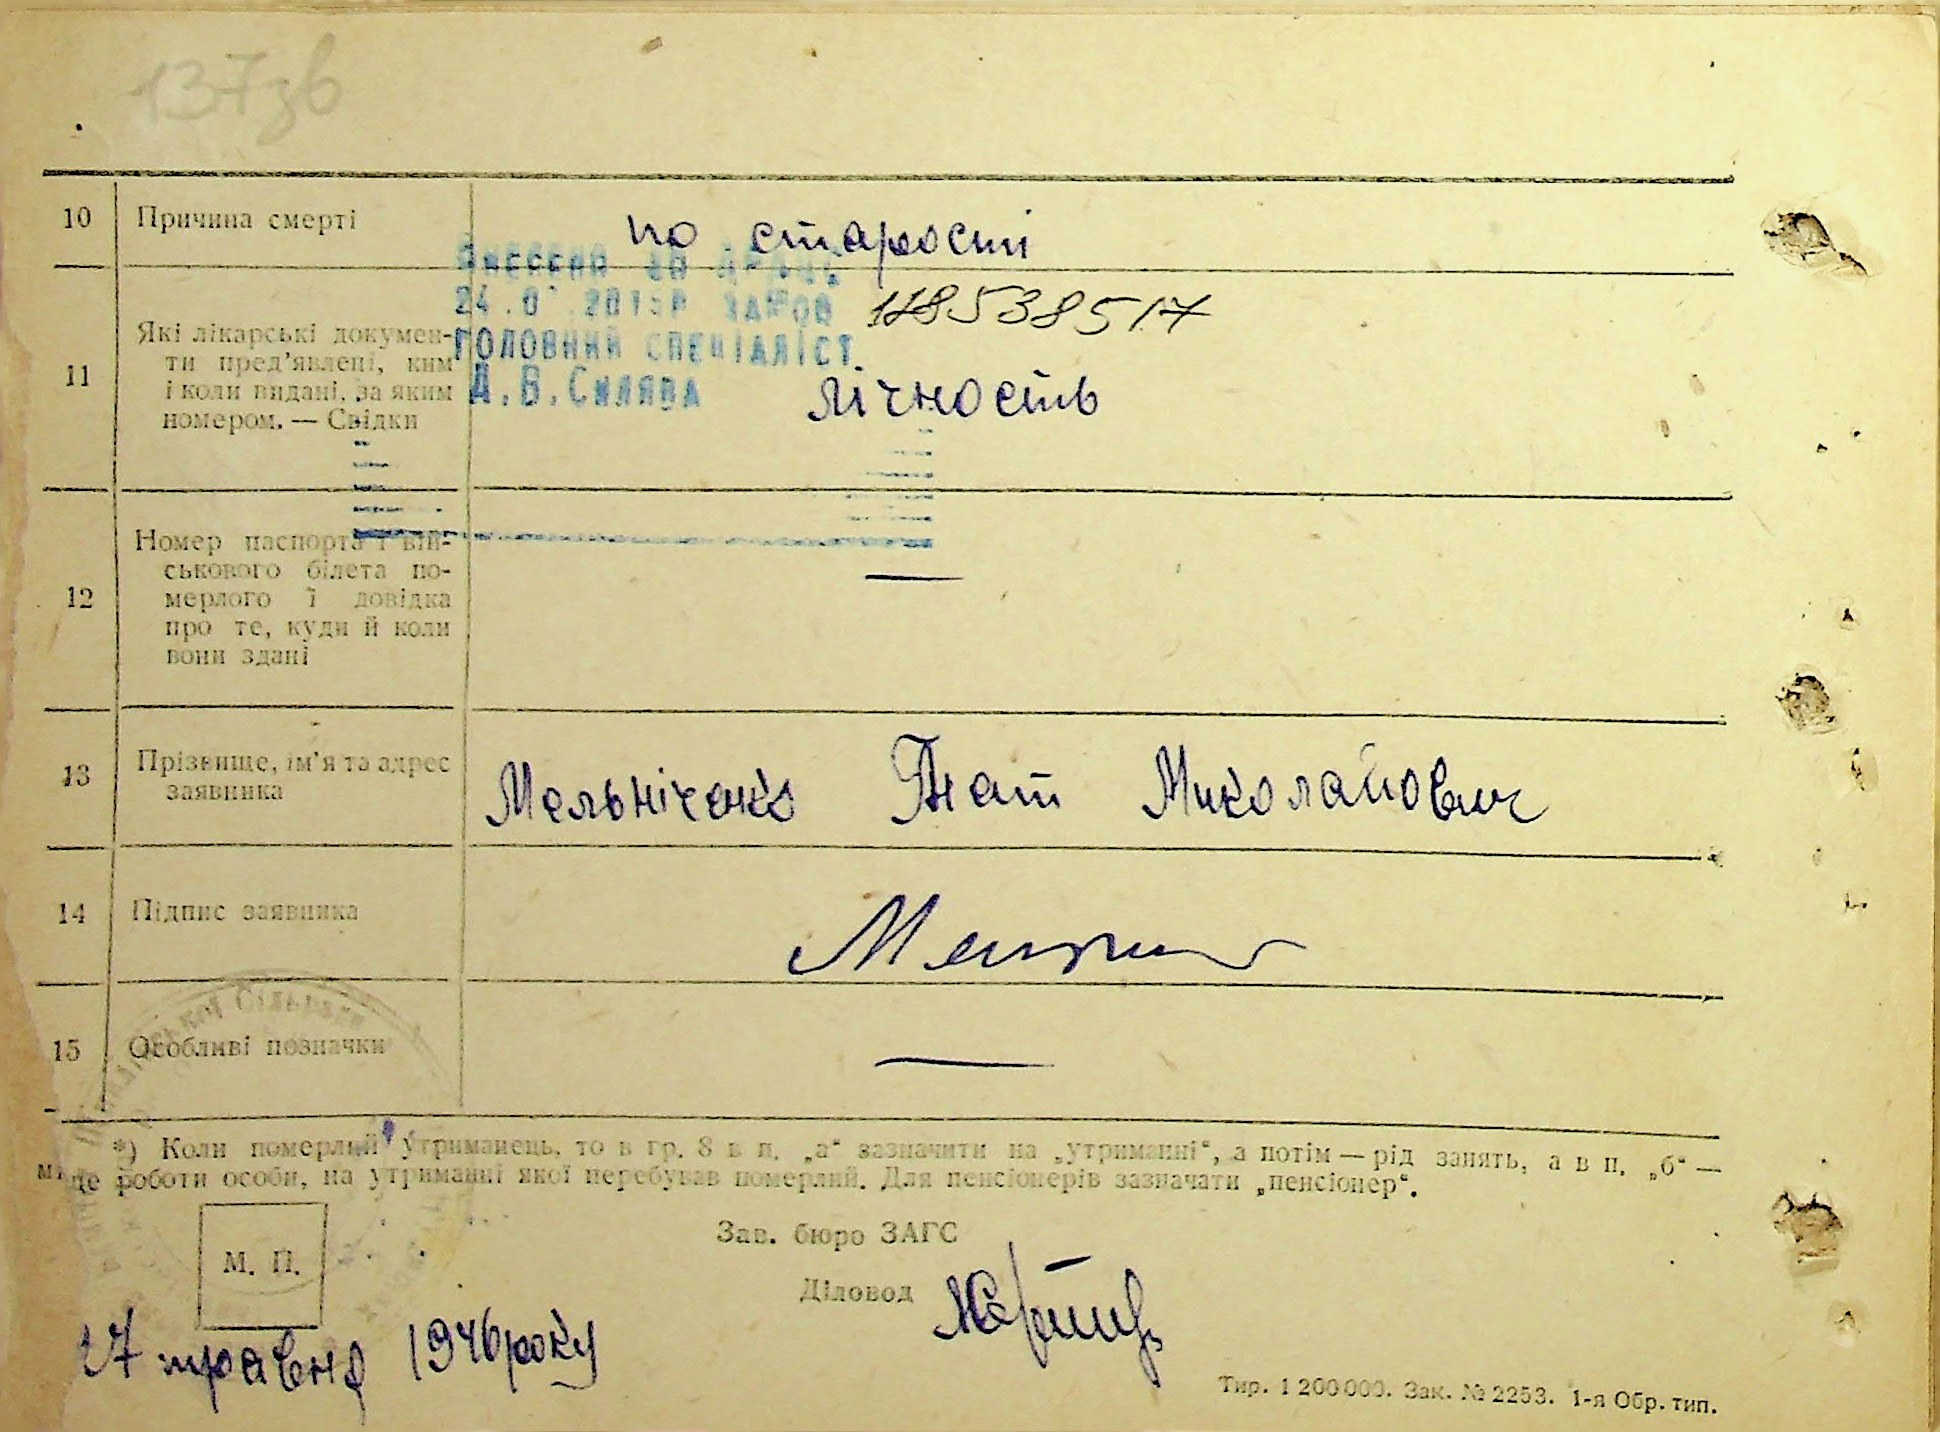 137зв
10 Причина смерті по старості
Внесено до ДРАЦС
ЗАПИС 118538517
ГОЛОВНИЙ СПЕЦІАЛІСТ
Д.В.Силява
11 Які лікарські докумен-
ти пред’явлені, ким
і коли видані, за яким
номером. — Свідки
лічность
12 Номер паспорта і вій-
ськового білета по-
мерлого і довідка
про те, куди й коли
вони здані
—
13 Прізвище, ім’я та адрес
заявника
Мельніченко Гнат Миколайович
14 Підпис заявника
15 Особливі позначки —
*) Коли померлий утриманець, то в гр. 8 в п. „а“ зазначити на „утриманні“, а потім — рід занять, а в п. „б“ —
місце роботи особи, на утриманні якої перебував померлий. Для пенсіонерів зазначати „пенсіонер“.
М. П.
Зав. бюро ЗАГС
Діловод
17 травня 1946 року
Тир. 1 200 000. Зак. № 2253. 1-я Обр. тип.